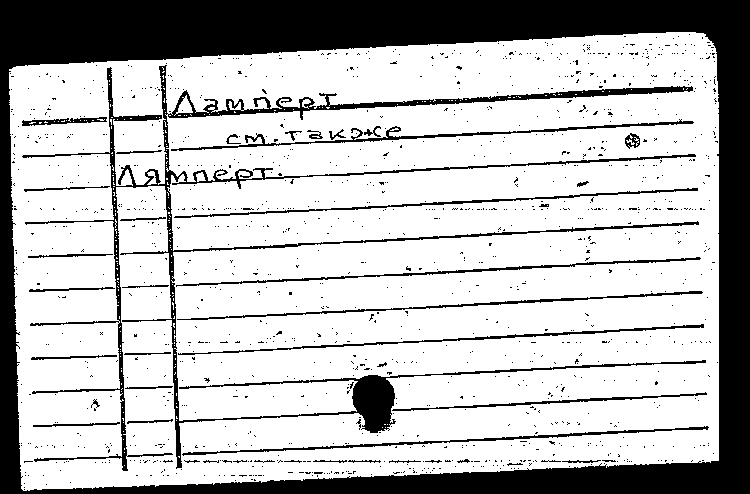 Ламперт
см. также
Лямперт.